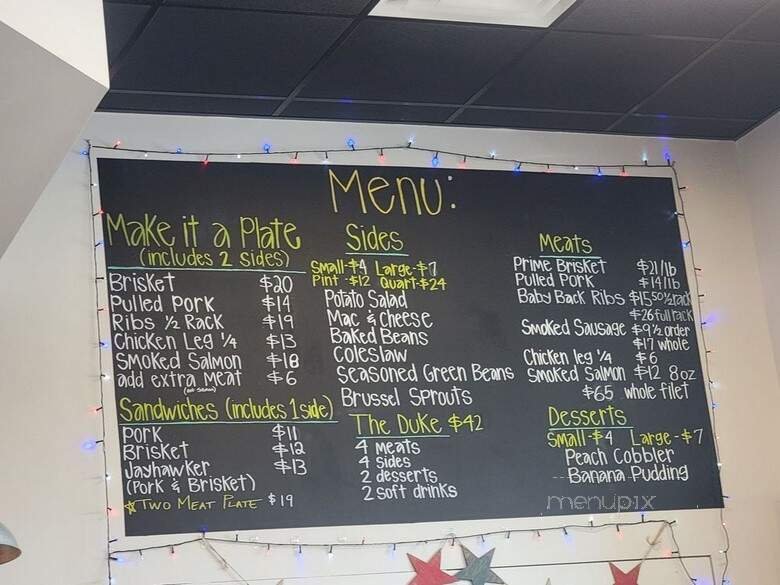 Menu:
Make it a Plate
(includes 2 sides)
Brisket $20
Pulled Pork $14
Ribs ½ Rack $19
Chicken Leg ¼ $13
Smoked Salmon $18
add extra meat $6
Sandwiches (includes 1 side)
Pork $11
Brisket $12
Jayhawker $13
(Pork & Brisket)
Two Meat Plate $19
Sides
Small-$4 Large-$7
Pint-$12 Quart-$24
Potato Salad
Mac & Cheese
Baked Beans
Coleslaw
Seasoned Green Beans
Brussel Sprouts
The Duke $42
4 meats
4 sides
2 desserts
2 soft drinks
Meats
Prime Brisket $21/lb
Pulled Pork $14/lb
Baby Back Ribs $15.50 ½ rack
$26 full rack
Smoked Sausage $9 ½ order
$17 whole
Chicken leg ¼ $6
Smoked Salmon $12 8oz
$65 whole filet
Desserts
Small-$4 Large-$7
Peach Cobbler
Banana Pudding
menupix